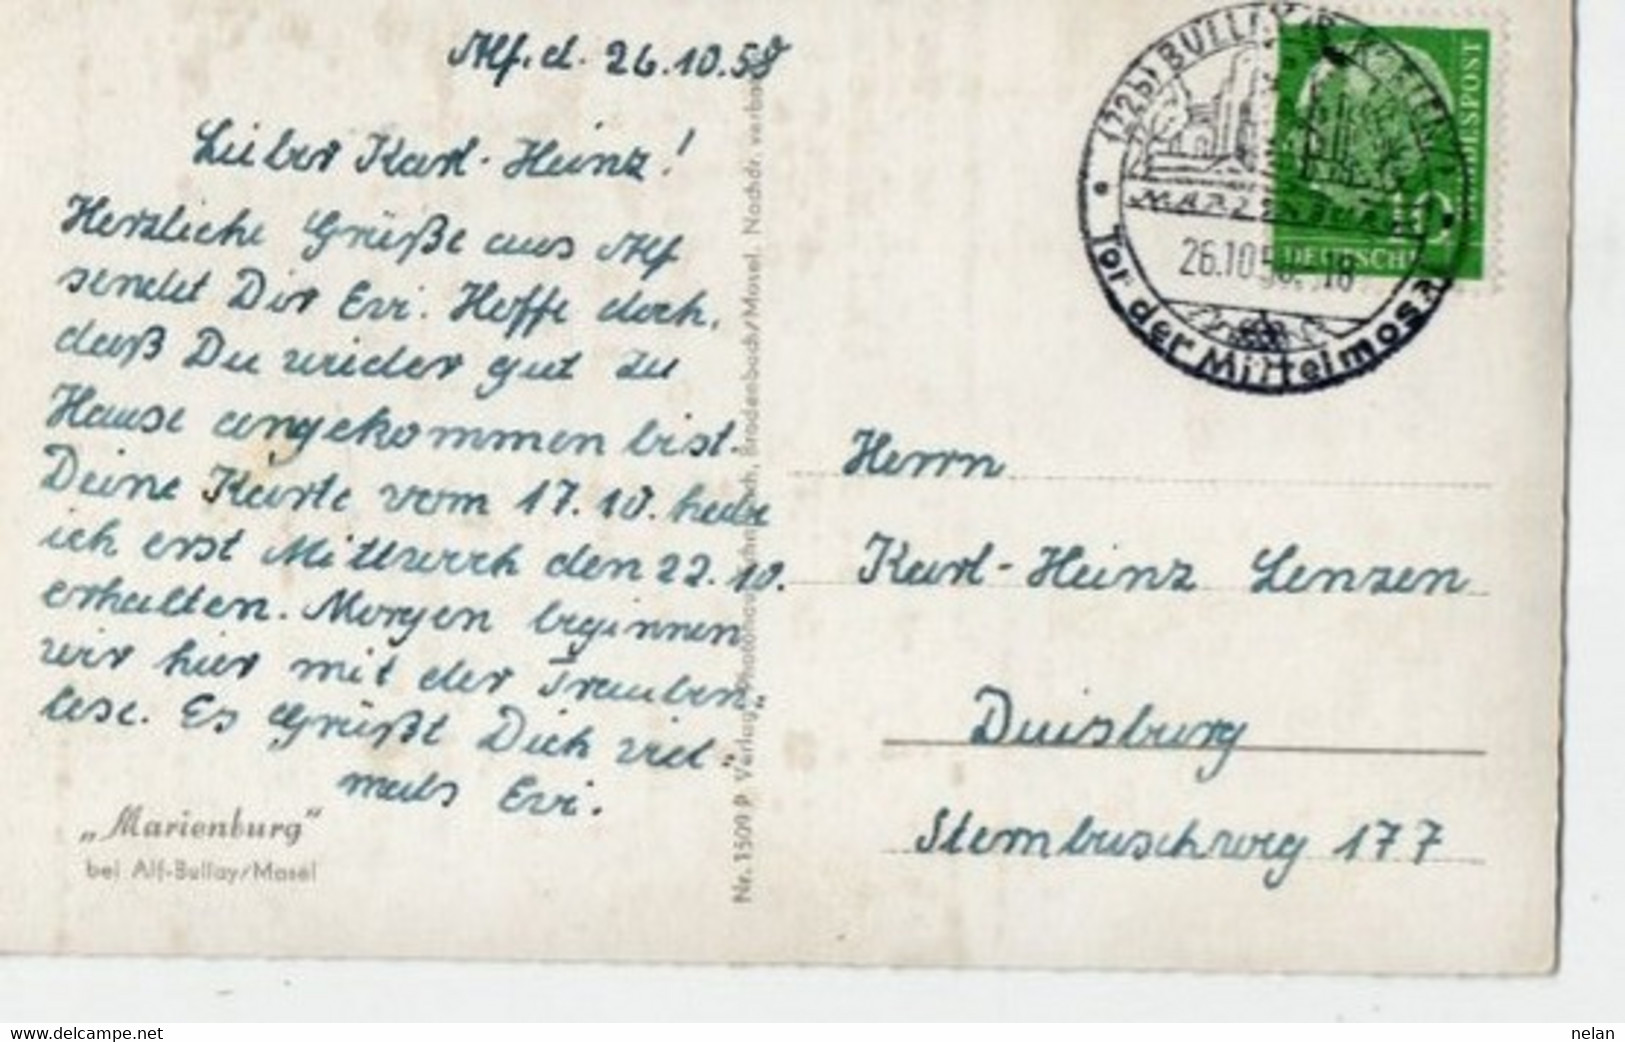 Alf. d. 26.10.58
Lieber Karl-Heinz!
Herzliche Grüße aus Alf
sendet Dir Evi. Hoffe doch,
daß Du wieder gut zu
Hause angekommen bist.
Deine Karte vom 17.10. habe
ich erst Mittwoch den 22.10.
erhalten. Morgen beginnen
wir hier mit der Trauben„
lese. Es Grüßt Dich viel„
mals Evi.
„Marienburg"
bei Alf-Bullay/Mosel
Nr. 1509 P. Verlag: Brodenbach/Mosel. Nachdr. verb.
(22b) BULLAY
MARIENBURG
26.10.58. 18
Tor der Mittelmosel
BUNDESPOST
10
DEUTSCHE
Herrn
Karl-Heinz Lenzen
Duisburg
Sternbuschweg 177
www.delcampe.net
nelan